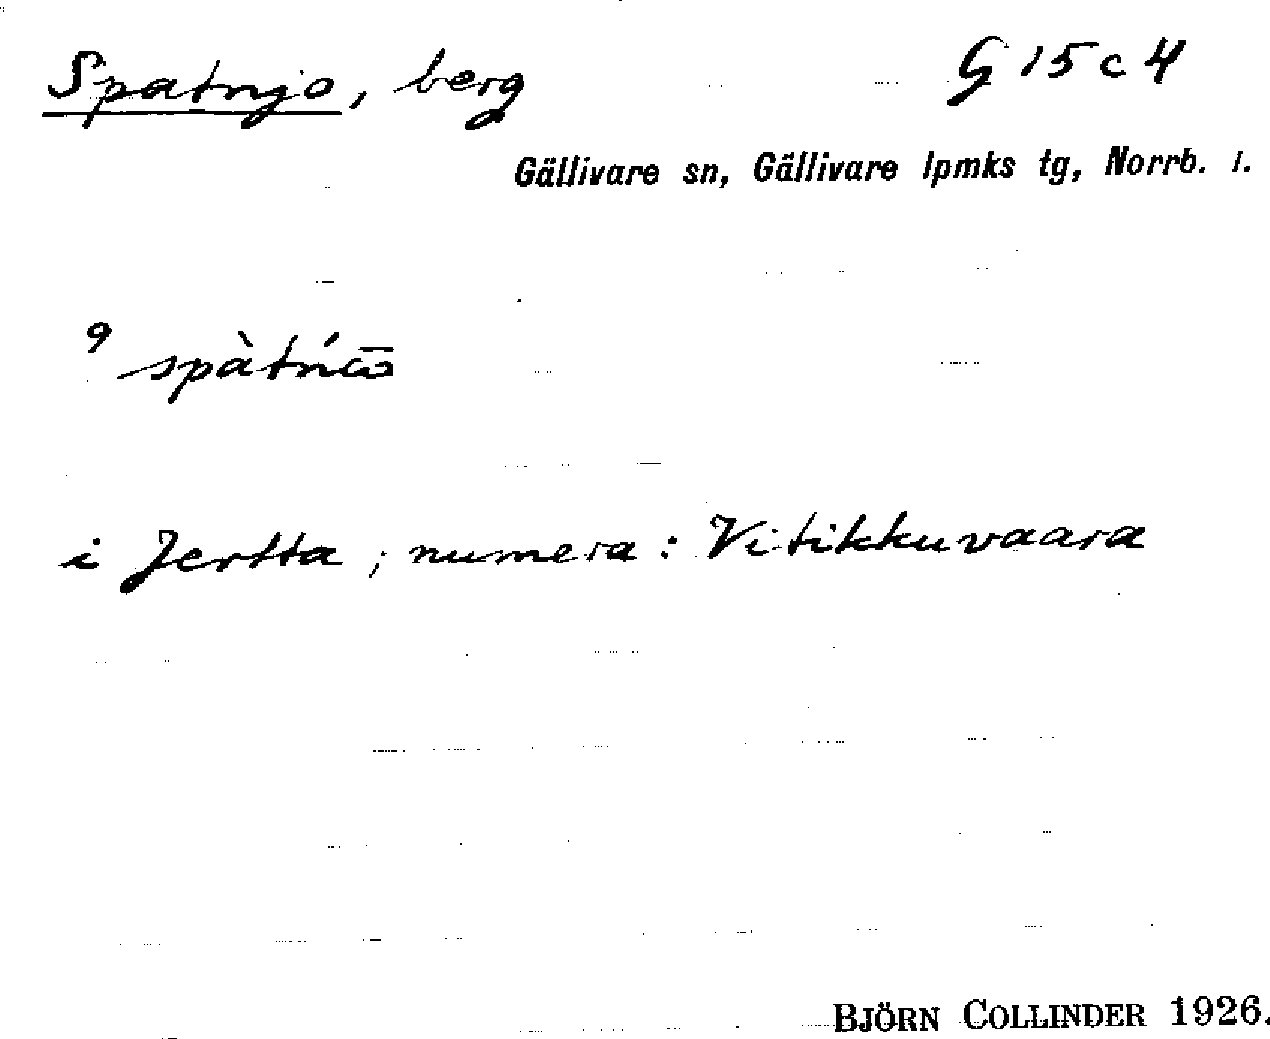 Spatnjo, berg G 15 c 4
Gällivare sn, Gällivare lpmks tg, Norrb. l.
9
i Jertta ; numera : Vitikkuvaara
BJÖRN COLLINDER 1926.